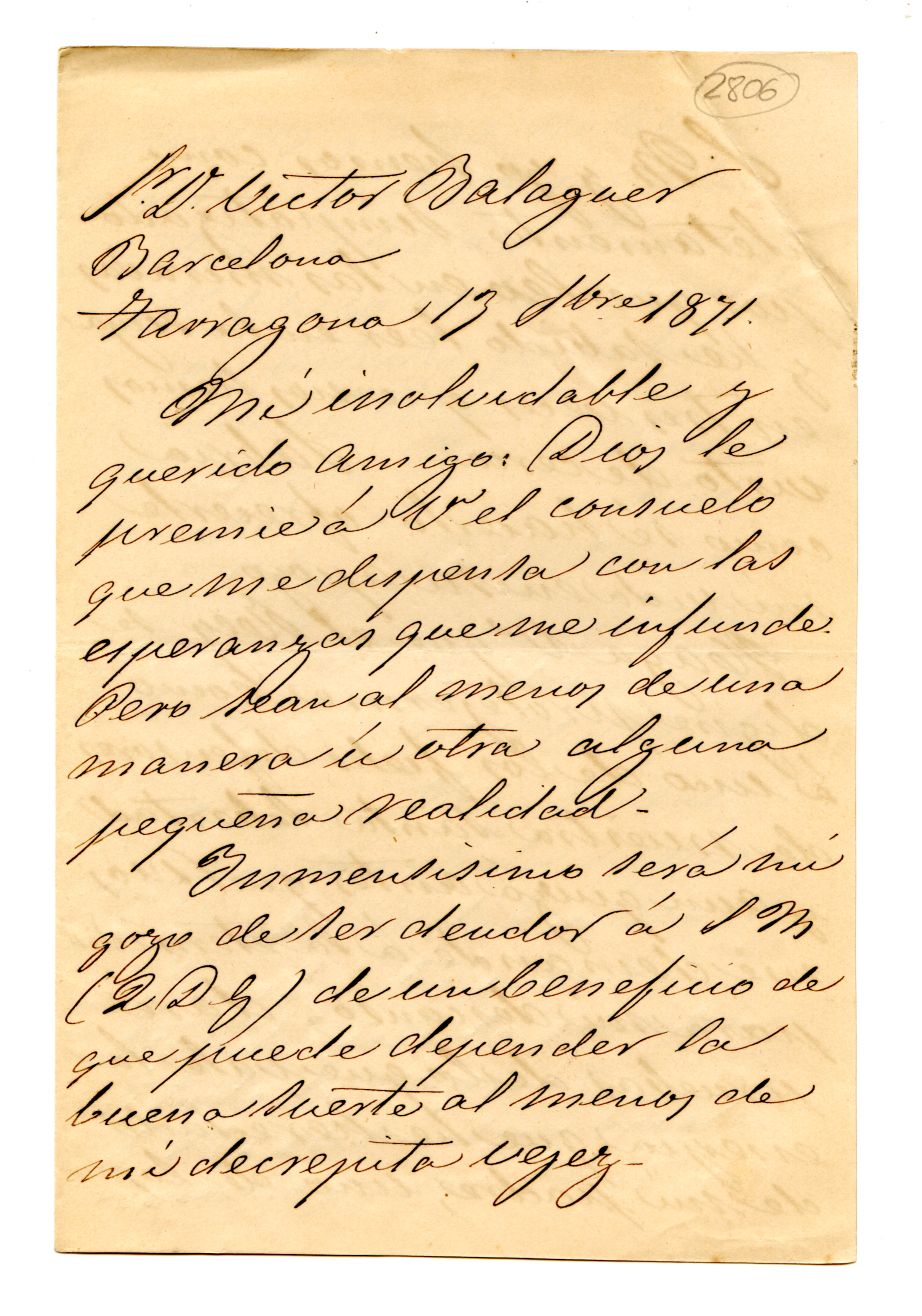 2806
Sr. D. Victor Balaguer
Barcelona
Tarragona 13 Sbre 1871.
Mi inolvidable y
querido amigo: Dios le
premie á V. el consuelo
que me dispensa con las
esperanzas que me infunde.
Pero sean al menos de una
manera ú otra alguna
pequeña realidad -
Inmensisimo será mi
gozo de ser deudor á S M
(Q D G) de un beneficio de
que puede depender la
buena suerte al menos de
mi decrepita vejez -